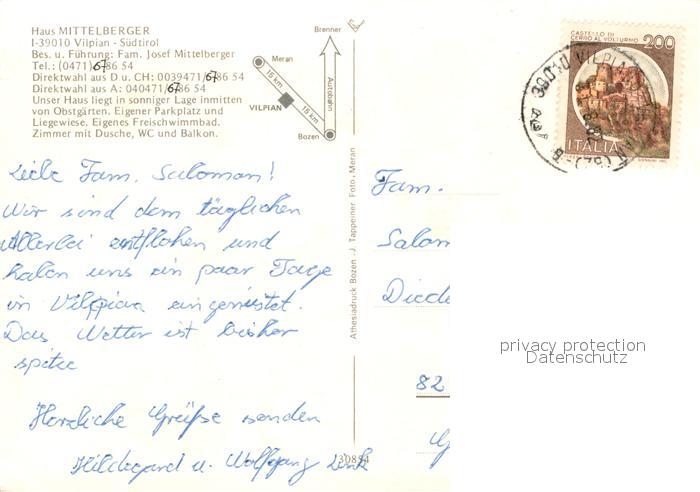 Haus MITTELBERGER
I-39010 Vilpian - Südtirol
Bes. u. Führung: Fam. Josef Mittelberger
Tel.: (0471) 67 86 54
Direktwahl aus D u. CH: 0039471/67 86 54
Direktwahl aus A: 040471/67 86 54
Unser Haus liegt in sonniger Lage inmitten
von Obstgärten. Eigener Parkplatz und
Liegewiese. Eigenes Freischwimmbad.
Zimmer mit Dusche, WC und Balkon.
Brenner
Meran
15 km
VILPIAN
15 km
Autobahn
Bozen
Liebe Fam. Saloman!
Wir sind dem täglichen
Allerlei entflohen und
haben uns ein paar Tage
in Vilpian eingenistet.
Das Wetter ist bisher
spitze
Herzliche Grüße senden
Hildegard u. Wolfgang
Athesiadruck Bozen - J. Tappeiner Foto, Meran
30854
CASTELLO DI
CERRO AL VOLTURNO
200
ITALIA
39010 VILPIA
Fam.
Salom
Diede
82
privacy protection
Datenschutz